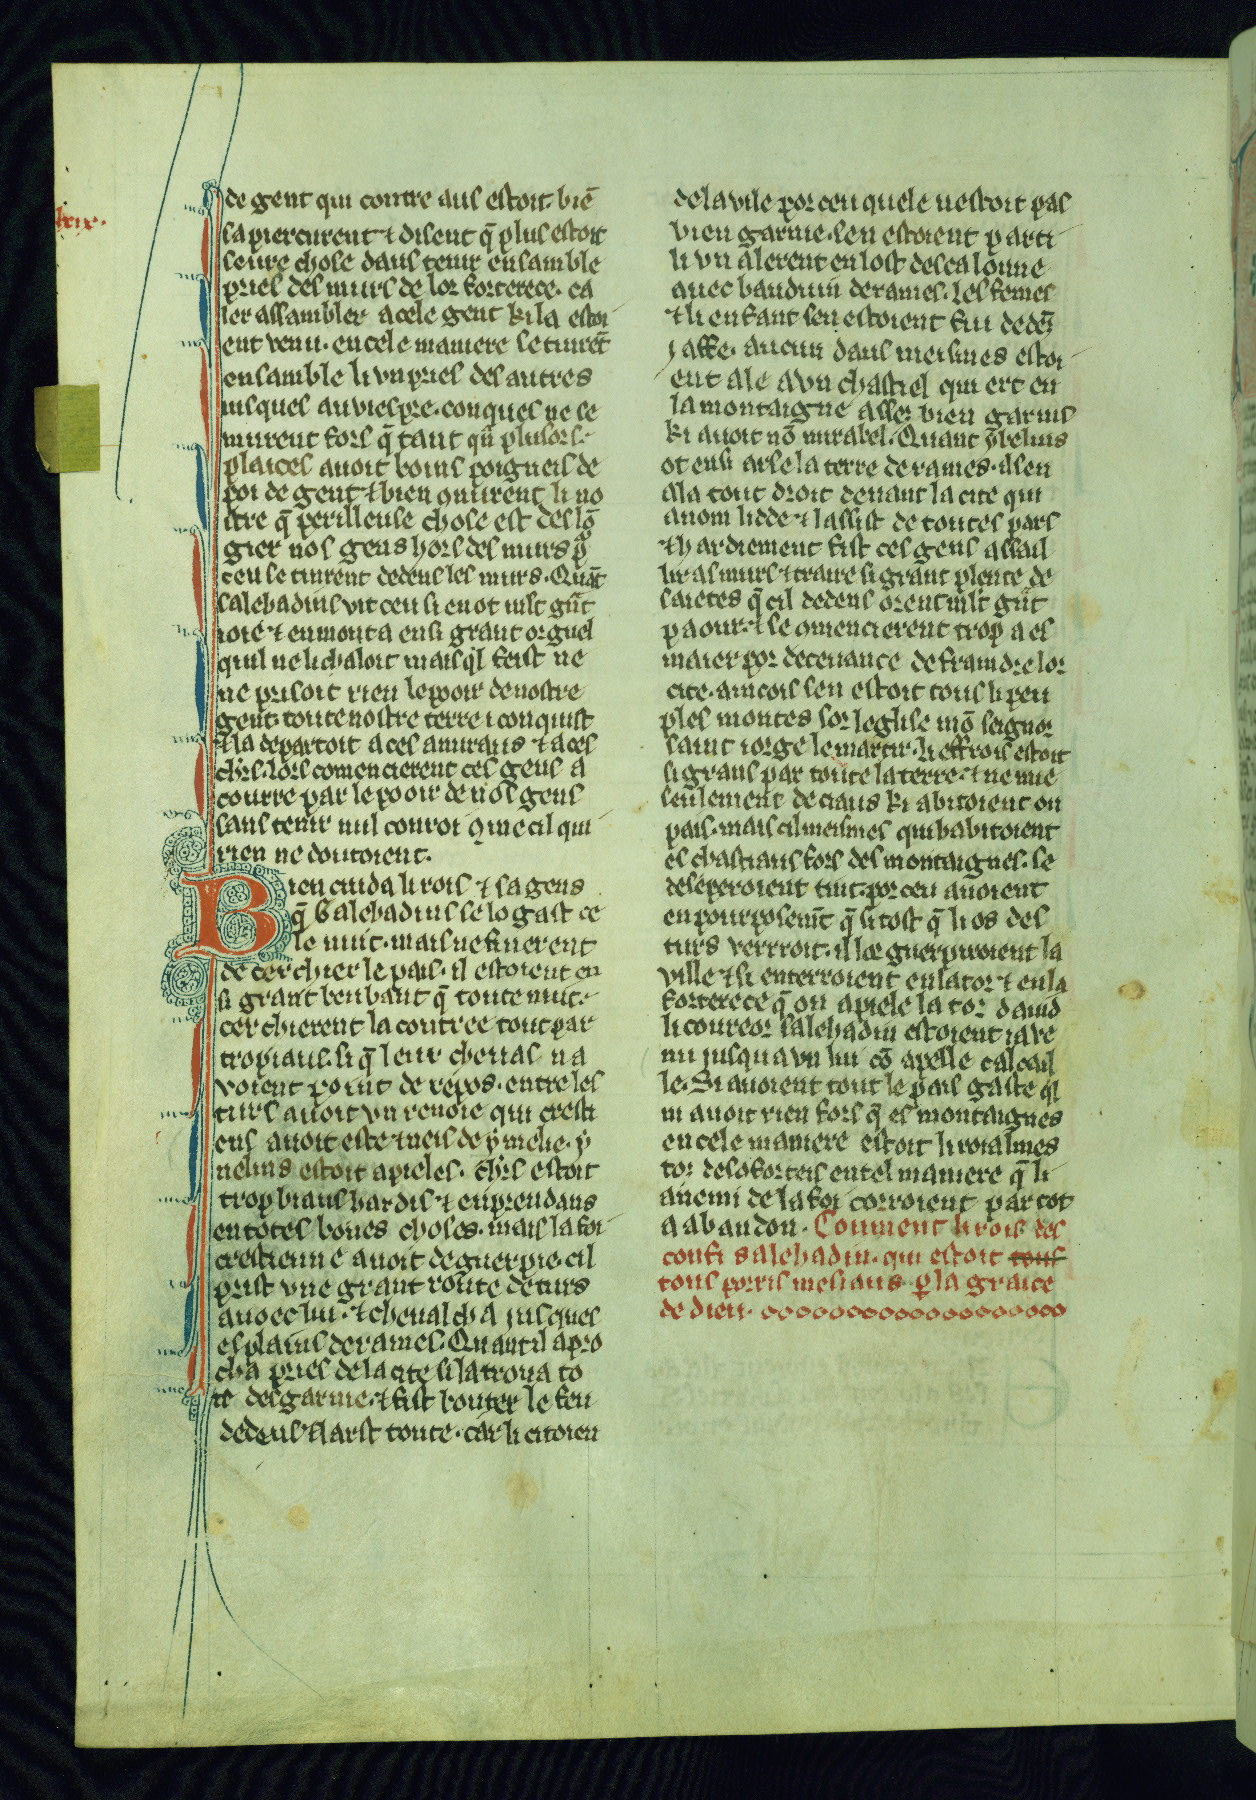 lxix.
de gent qui contre aus estoit. biē
sapiercurent ⁊ disent q̄ plus estoit
seure chose daus tenir ensamble
pries des murs de lor forterece. ca
ler assambler acele gent ki la estoi
ent venu. en cele maniere se tinrēt
ensamble li vn pries des autres
iusques au viespre. conques ne se
murent fors q̄ tant qͥl plusors
plaices auoit boins poigneis de
poi de gent ⁊ bien ꝯnurent li no
stre q̄ perilleuse chose est des lō
gier nos gens hors des murs p̄
ceu se tinrent dedens les murs. Quāt
salehadins vit ceu si en ot mlt grāt
ioie ⁊ en monta ensi grant orguel
quil ne li chaloit mais qͥl feist ne
ne prisoit rien le pooir de nostre
gent. toute nostre terre i conquist
⁊ la departoit a ces amiraus ⁊ a ces
chrs. lors comencierent ces gens a
courre par le pooir de nos gens
sans tenir nul conroi ꝯme cil qui
rien ne doutoient.
Bien cuida li rois ⁊ sa gens
q̄ Salehadins se logast ce
le nuit. mais ne finerent
de cerchier le pais. il estoient en
si grant beubant q̄ toute nuit
cerchierent la contree tout par
tropiaus. si q̄ leur cheuas na
voient point de repos. entre les
turs auoit vn renoie qui cresti
ens auoit este ⁊ neis de ẏmenie. ẏ
nelins estoit apieles. chrs estoit
trop biaus hardis ⁊ enprendans
en totes boues choses. mais la foi
crestienne auoit deguerpie. cil
prist vne grant route de turs
auoec lui. ⁊ cheualcha iusques
es plains de rames. Quant il apro
cha pries de la cite si la troua to
te desgarnie. ⁊ fist bouter le feu
dedens ⁊ larst toute. car li citoien
de la vile por ceu quele nestoit pas
bien garnie. sen estoient parti
li vn alerent en lost descalonne
auec bauduin de rames. les femes
⁊ li enfant sen estoient fui dedēs
jaffe. aucun daus meismes estoi
ent ale a vn chastiel qui ert en
la montaigne asses bien garnis
ki auoit nō mirabel. Quant ẏuelins
ot ensi arse la terre de rames. il sen
ala tout droit deuant la cite qui
a nom lidde ⁊ lassist de toutes pars
⁊ hardiement fist ces gens assail
lir as murs ⁊ traire si grant plente de
saietes q̄ cil dedens orent mlt grāt
paour. ⁊ se ꝯmencierent trop a es
maier por deceuance de fraindre lor
cite. aincois sen estoit tous li peu
ples montes sor leglise mō seignor
saint iorge le martir. li effrois estoit
si grans par toute la terre. ⁊ ne mie
seulement de ciaus ki abitoient ou
pais. mais cil meismes qui habitoient
es chastiaus fors des montaignes. se
deseperoient tuit. por ceu auoient
en pourposemt q̄ si tost q̄ li os des
turs verroit. il la guerpiroient la
ville ⁊ si enterroient en la tor ⁊ en la
forterece q̄ on apiele la tor dauid
li coureor salehadin estoient ja ve
nu jusqua vn liu cō apelle calcail
le. Si auoient tout le pais gaste qͥl
ni auoit rien fors q̄ es montaignes
en cele maniere estoit li roialmes
tor desconforteis en tel maniere q̄ li
anemi de la foi corroient par tot
a abandon. Comment li rois des
confi salehadin. qui estoit tous
tous porris mesiaus. p la graice
de dieu.